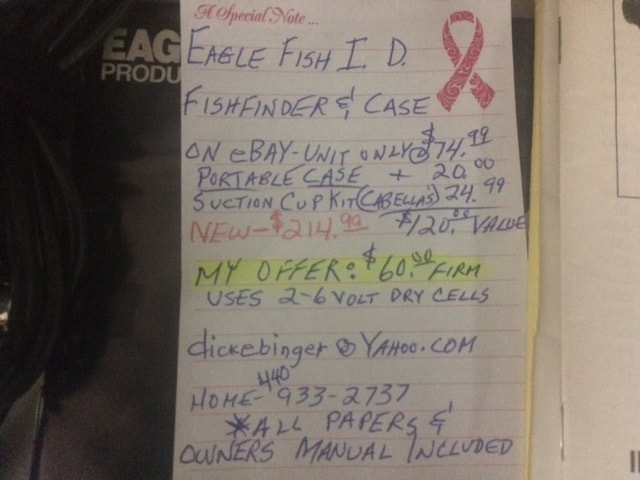 A Special Note...
EAG
PRODU
EAGLE FISH I. D.
FISHFINDER & CASE
ON eBAY-UNIT ONLY @ $74.99
PORTABLE CASE + 20.00
SUCTION CUP KIT (CABELLAS) 24.99
NEW-$214.99 $120.00 VALUE
MY OFFER: $60.00 FIRM
USES 2-6 VOLT DRY CELLS
dickebinger @ YAHOO.COM
HOME- 440 933-2737
*ALL PAPERS &
OWNERS MANUAL INCLUDED